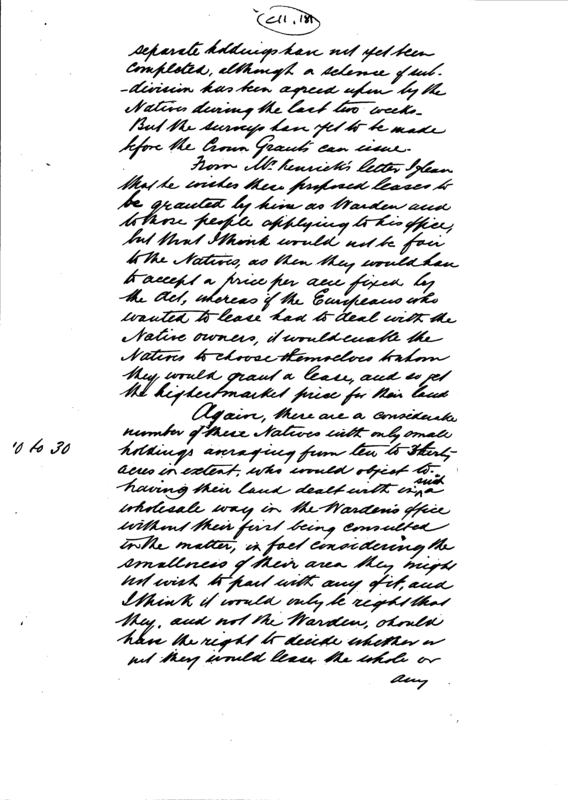 C11.181
separate holdings have not yet been
completed, although a scheme of sub-
-division has been agreed upon by the
Natives during the last two weeks-
But the surveys have yet to be made
before the Crown Grants can issue.
From Mr Kenrick's letter I glean
that he wishes these proposed leases to
be granted by him as Warden and
to those people applying to his office,
but that I think would not be fair
to the Natives, as then they would have
to accept a price per acre fixed by
the Act, whereas if the Europeans who
wanted to lease had to deal with the
Native owners, it would enable the
Natives to choose themselves to whom
they would grant a lease, and so get
the highest market price for their land
Again, there are a considerable
number of these Natives with only small
10 to 30
holdings averaging from ten to thirty
acres in extent, who would object to
having their land dealt with in such a
wholesale way in the Warden's office
without their first being consulted
in the matter, in fact considering the
smallness of their area they might
not wish to part with any of it, and
I think it would only be right that
they, and not the Warden, should
have the right to decide whether or
not they would lease the whole or
any